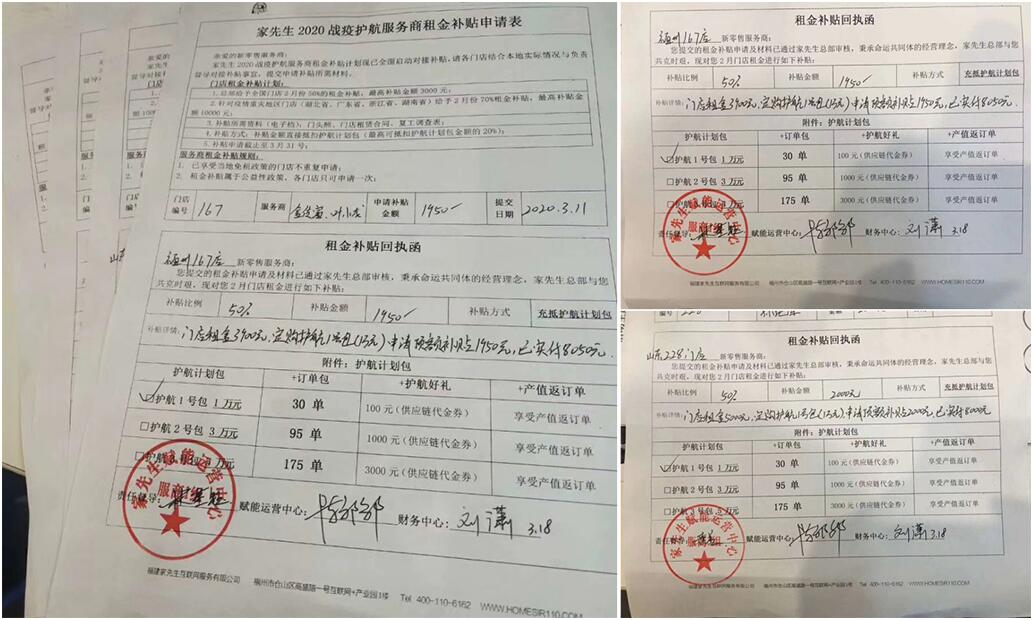 家先生2020战疫护航服务商租金补贴申请表
亲爱的新零售服务商:
家先生2020战疫护航服务商租金补贴计划现已全面启动对接补贴,请各门店结合本地实际情况与负责
督导对接补贴事宜,提交申请补贴所需材料。
门店租金补贴计划:
1.总部给予全国门店2月份50%的租金补贴,最高补贴金额3000元;
2.针对疫情重灾地区门店(湖北省、广东省、浙江省、湖南省)给予2月份70%租金补贴,最高补贴
金额10000元;
3.补贴所需资料(电子档):门头照、门店租赁合同、复工调查表;
4.补贴方式:补贴金额直接抵扣护航计划包(最高可抵扣护航计划包金额的20%);
5.补贴申请截止至3月31号;
服务商租金补贴规则:
1. 已享受当地免租政策的门店不重复申请;
2. 租金补贴属于公益性政策,各门店只可申请一次;
门店编号 167 服务商 申请补贴金额 1950 提交日期 2020.3.11
租金补贴回执函
福州167店 新零售服务商:
您提交的租金补贴申请及材料已通过家先生总部审核,秉承命运共同体的经营理念,家先生总部与您
共克时艰,现对您2月门店租金进行如下补贴:
补贴比例 50% 补贴金额 1950 补贴方式 充抵护航计划包
补贴详情: 门店租金3900元,定购护航1号包(1万元)申请顶额补贴1950元,已实付8050元.
附件:护航计划包
护航计划包 +订单包 +护航好礼 +产值返订单
护航1号包 1万元 30 单 100元(供应链代金券) 享受产值返订单
□护航2号包 3万元 95 单 1000元(供应链代金券) 享受产值返订单
175 单 3000元(供应链代金券) 享受产值返订单
家先生赋能运营中心
服商组
责任督导: 赋能运营中心: 财务中心: 刘潇 3.18
福建家先生互联网服务有限公司 福州市仓山区高盛路一号互联网+产业园1楼 Tel 400-110-6162 WWW.HOMESIR110.COM
租金补贴回执函
福州167店 新零售服务商:
您提交的租金补贴申请及材料已通过家先生总部审核,秉承命运共同体的经营理念,家先生总部与您
共克时艰,现对您2月门店租金进行如下补贴:
补贴比例 50% 补贴金额 1950 补贴方式 充抵护航计划包
补贴详情: 门店租金3900元,定购护航1号包(1万元)申请顶额补贴1950元,已实付8050元.
附件:护航计划包
护航计划包 +订单包 +护航好礼 +产值返订单
护航1号包 1万元 30 单 100元(供应链代金券) 享受产值返订单
□护航2号包 3万元 95 单 1000元(供应链代金券) 享受产值返订单
175 单 3000元(供应链代金券) 享受产值返订单
家先生赋能运营中心
服商组
责任督导: 赋能运营中心: 财务中心: 刘潇 3.18
福建家先生互联网服务有限公司 福州市仓山区高盛路一号互联网+产业园1楼 Tel 400-110-6162 WWW.HOMESIR110.COM
租金补贴回执函
山东228门店 新零售服务商:
您提交的租金补贴申请及材料已通过家先生总部审核,秉承命运共同体的经营理念,家先生总部与您
共克时艰,现对您2月门店租金进行如下补贴:
补贴比例 50% 补贴金额 2000元 补贴方式 充抵护航计划包
补贴详情: 门店租金5000元,定购护航1号包(1万元)申请顶额补贴2000元,已实付8000元
附件:护航计划包
护航计划包 +订单包 +护航好礼 +产值返订单
护航1号包 1万元 30 单 100元(供应链代金券) 享受产值返订单
□护航2号包 3万元 95 单 1000元(供应链代金券) 享受产值返订单
□护航3号包 175 单 3000元(供应链代金券) 享受产值返订单
家先生赋能运营中心
责任督导: 赋能运营中心: 财务中心: 刘潇 3.18
福建家先生互联网服务有限公司 福州市仓山区高盛路一号互联网+产业园1楼 Tel 400-110-6162 WWW.HOMESIR110.COM